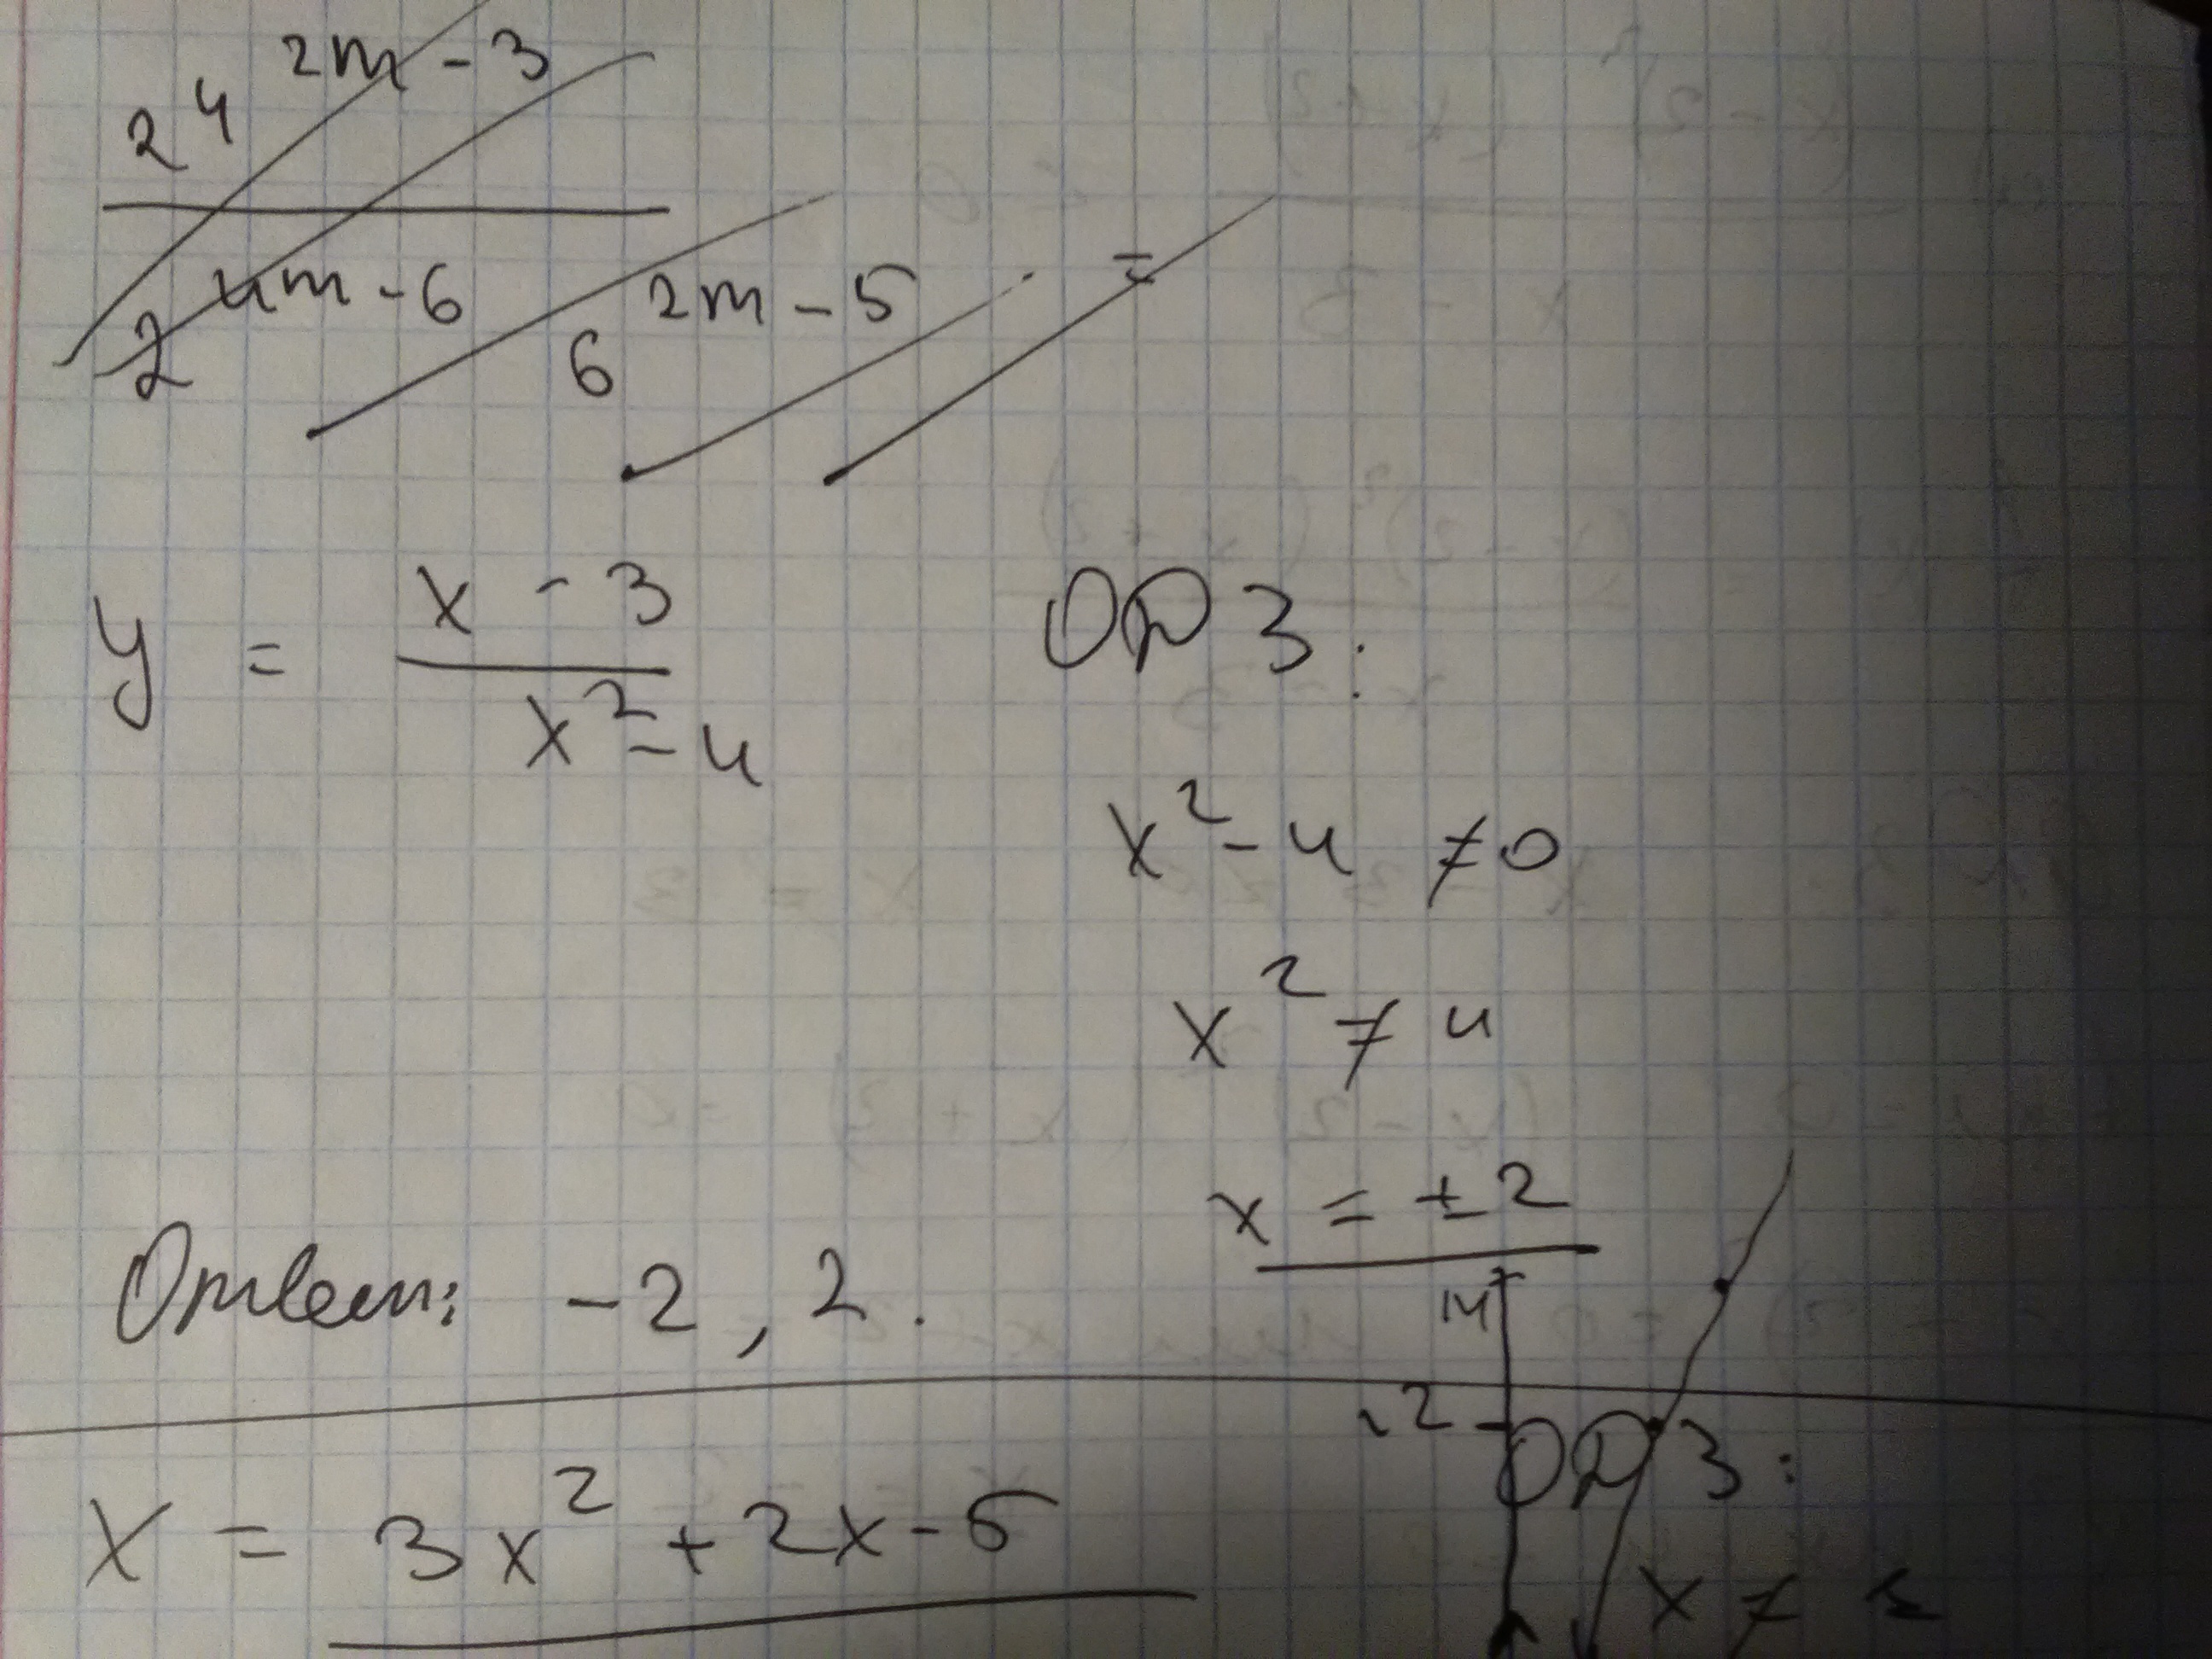 24^(2m-3)
2^(4m-6) 6^(2m-5) =
y = (x - 3)/(x² - 4)
ОДЗ:
x² - 4 ≠ 0
x² ≠ 4
x = ±2
Ответ: -2, 2.
14
12
ОДЗ:
x = 3x² + 2x - 5
x ≠